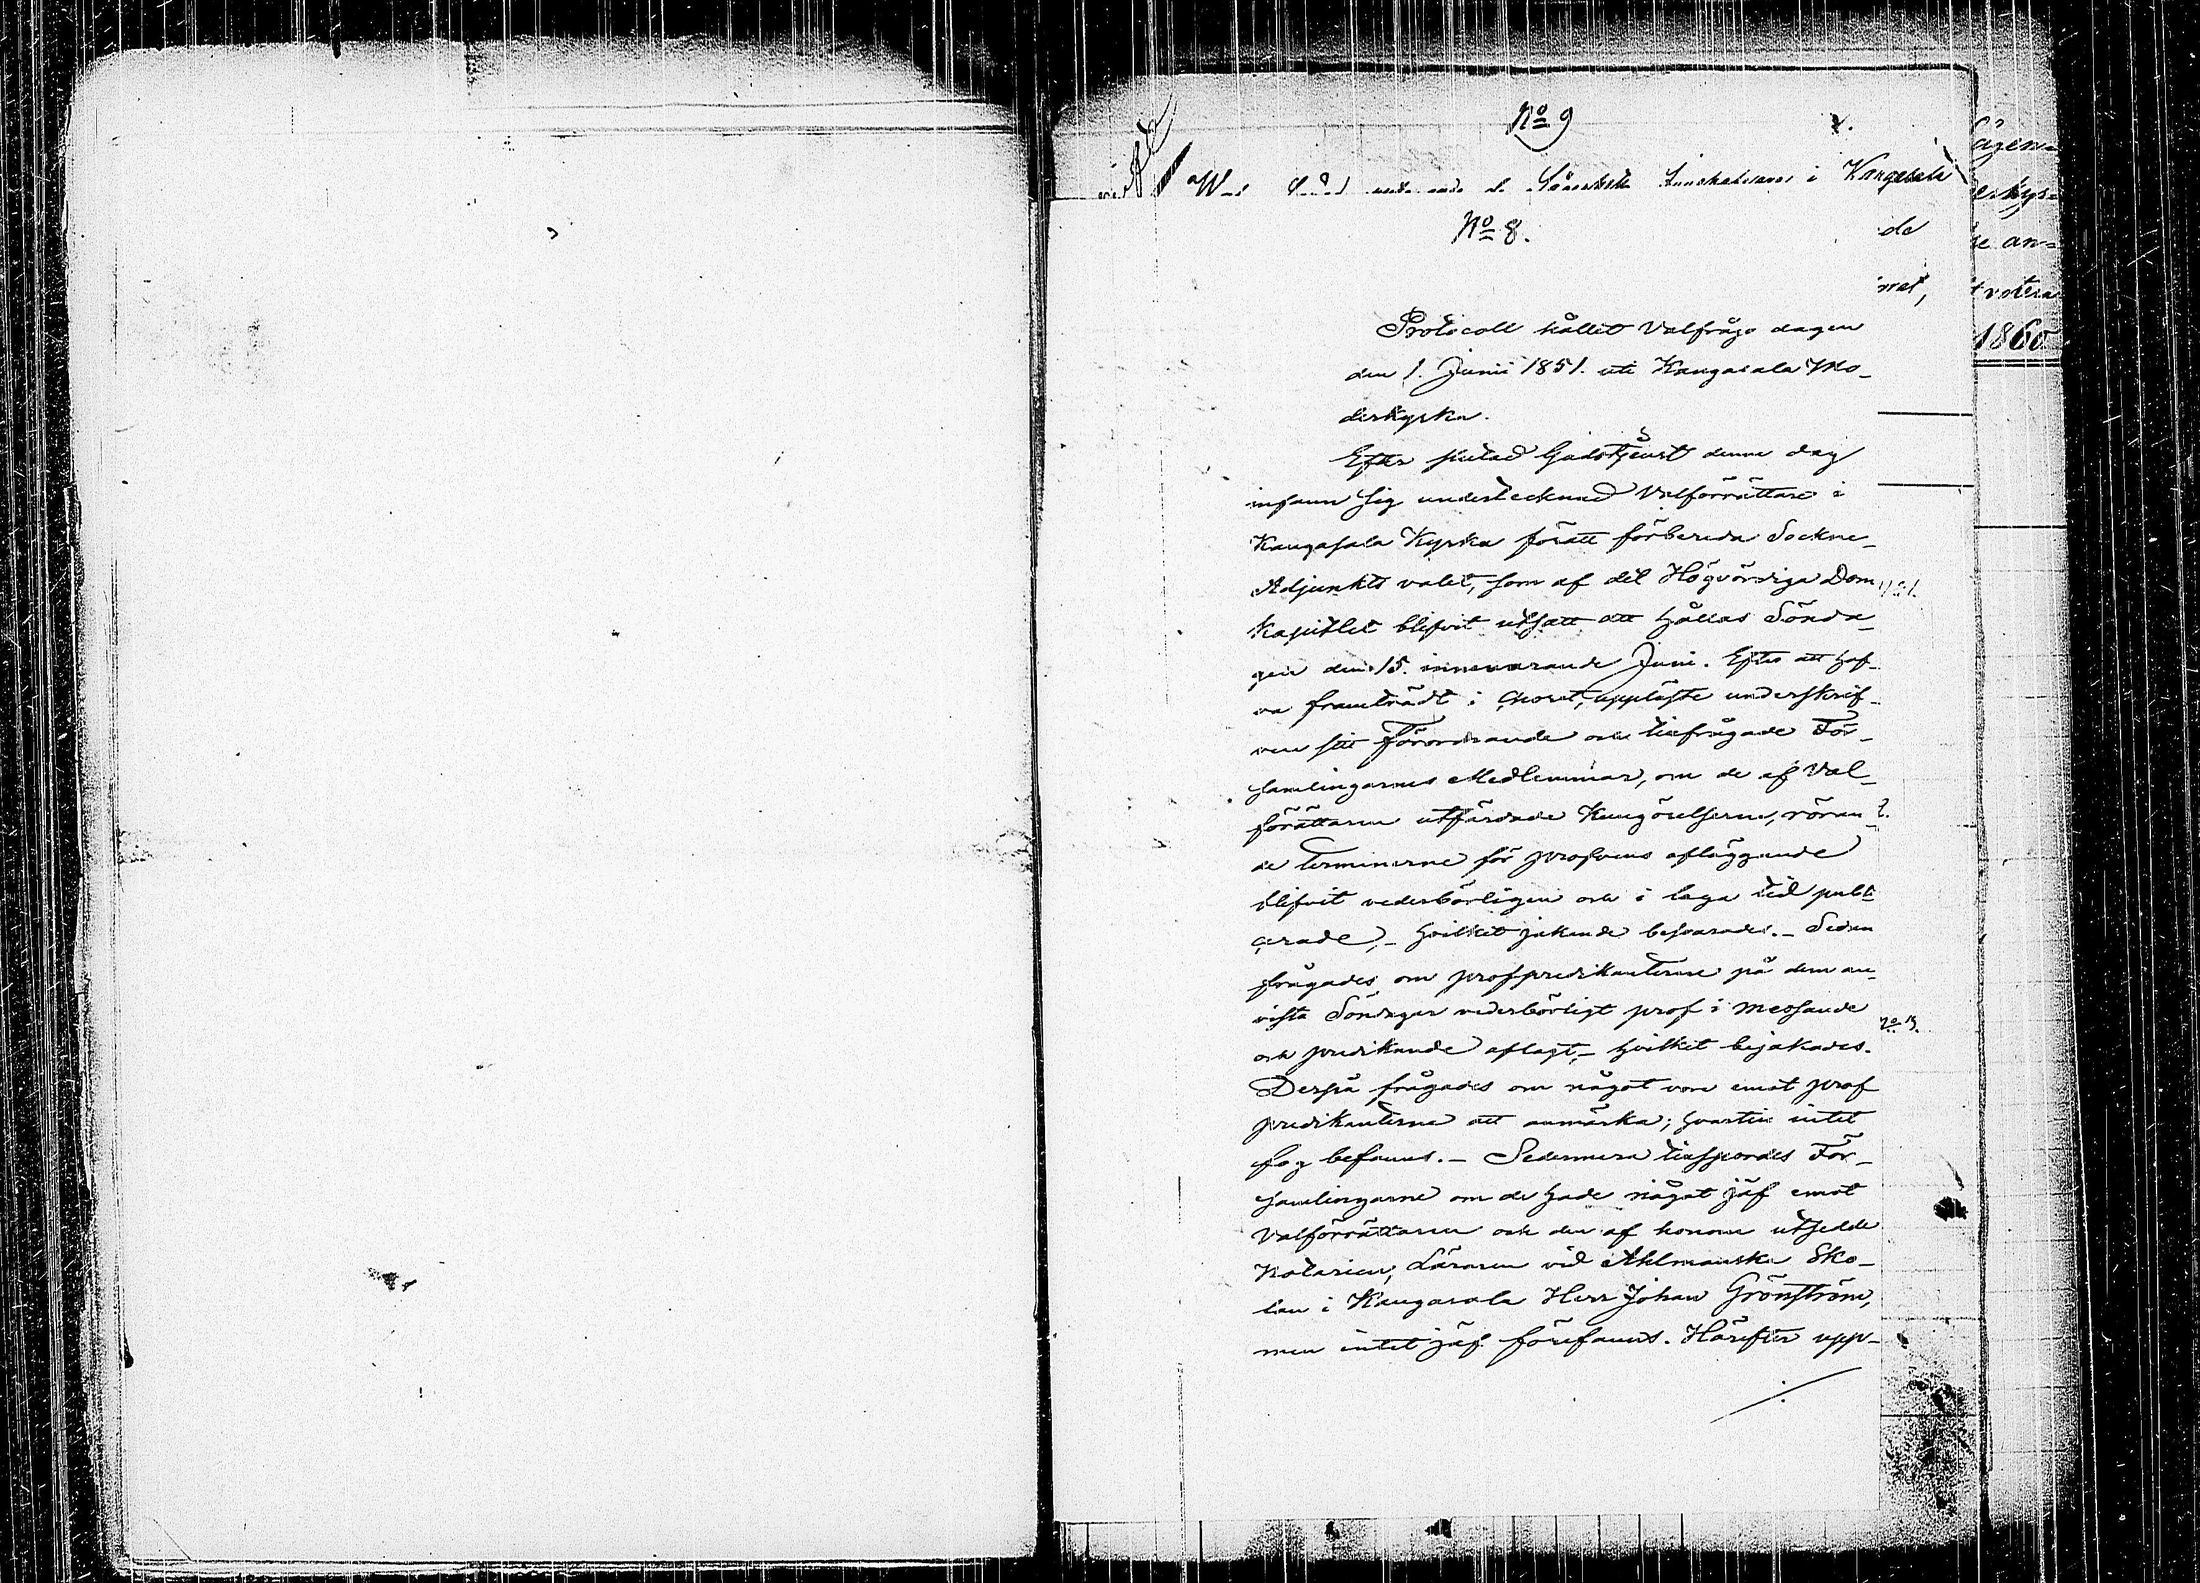 No 9
i Kangasala
No 8.
de
Protocoll hållet Valfråge dagen
den 1. Junii 1851. uti Kangasala Mo-
derkyrka.
Efter slutad Gudstjenst denne dag
infann sig undertecknad Valförrättare i
Kangasala Kyrka föratt förbereda Sockne-
Adjunkts valet, som af det Högvördiga Dom
Kapitlet blifvit utsatt att hållas Sönda-
gen den 15. innevarande Juni. Efter att haf-
va framträdt i Choret, uppläste underskrif-
ven sitt Förordnande och tillfrågade För-
samlingarnes Medlemmar, om de af Val-
förättaren utfärdade Kungörelserne, röran-
de terminerne för profvens afläggande
blifvit vederbörligen och i laga tid publi
cerade, - hvilket jakande besvarades. - Sedan
frågades om profpredikanterne på dem an-
vista Söndagar vederbörligt prof i messande
och predikande aflagt, - hvilket bejakades.
Derpå frågades om något vore emot prof
predikanterne att anmärka; hvartill intet
fog befanns. - Sedermera tillspordes För-
samlingarne om de hade något jäf emot
Valförrättaren och den af honom utsedde
Notarien, Läraren vid Ahlmanska Sko-
lan i Kangasala Herr Johan Grönström,
men intet jäf förefanns. Härefter upp-
./.
ägen=
erkys=
e an=
votera
1860